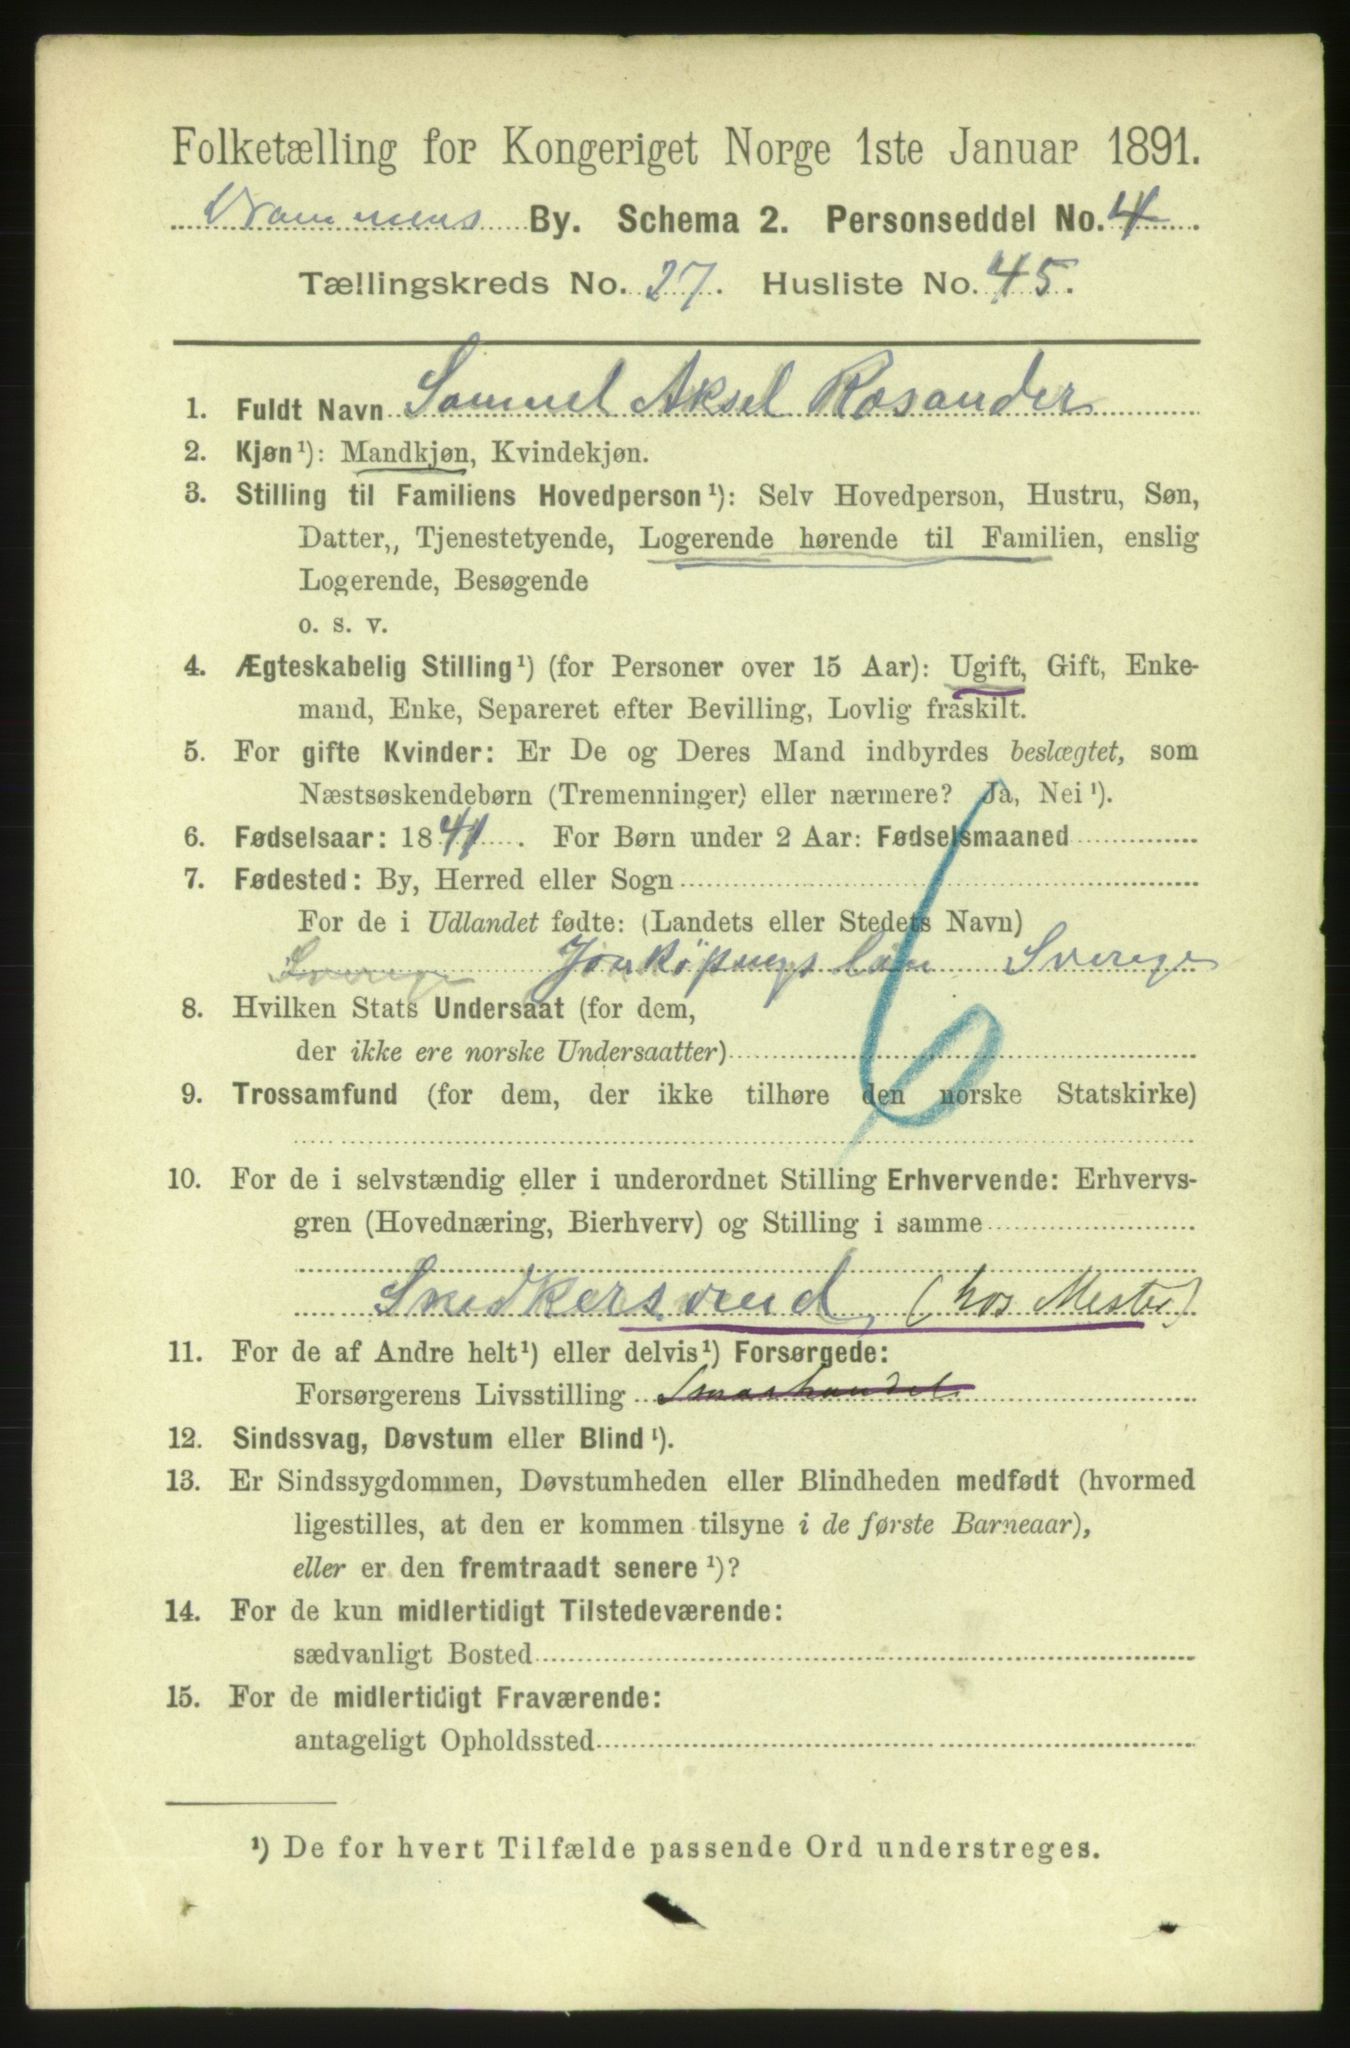 Folketælling for Kongeriget Norge 1ste Januar 1891.
Drammens By. Schema 2. Personseddel No. 4.
Tællingskreds No. 27. Husliste No. 45.
1. Fuldt Navn Samuel Aksel Rosander
2. Kjøn¹): Mandkjøn, Kvindekjøn.
3. Stilling til Familiens Hovedperson¹): Selv Hovedperson, Hustru, Søn,
Datter,, Tjenestetyende, Logerende hørende til Familien, enslig
Logerende, Besøgende
o. s. v.
4. Ægteskabelig Stilling¹) (for Personer over 15 Aar): Ugift, Gift, Enke-
mand, Enke, Separeret efter Bevilling, Lovlig fraskilt.
5. For gifte Kvinder: Er De og Deres Mand indbyrdes beslægtet, som
Næstsøskendebørn (Tremenninger) eller nærmere? Ja, Nei¹).
6. Fødselsaar: 1841. For Børn under 2 Aar: Fødselsmaaned
7. Fødested: By, Herred eller Sogn
For de i Udlandet fødte: (Landets eller Stedets Navn)
Sverige Jönköpings län Sverige
6
8. Hvilken Stats Undersaat (for dem,
der ikke ere norske Undersaatter)
9. Trossamfund (for dem, der ikke tilhøre den norske Statskirke)
10. For de i selvstændig eller i underordnet Stilling Erhvervende: Erhvervs-
gren (Hovednæring, Bierhverv) og Stilling i samme
Snedkersvend, (hos Mester)
11. For de af Andre helt¹) eller delvis¹) Forsørgede:
Forsørgerens Livsstilling Smaahandel
12. Sindssvag, Døvstum eller Blind¹).
13. Er Sindssygdommen, Døvstumheden eller Blindheden medfødt (hvormed
ligestilles, at den er kommen tilsyne i de første Barneaar),
eller er den fremtraadt senere¹)?
14. For de kun midlertidigt Tilstedeværende:
sædvanligt Bosted
15. For de midlertidigt Fraværende:
antageligt Opholdssted
¹) De for hvert Tilfælde passende Ord understreges.